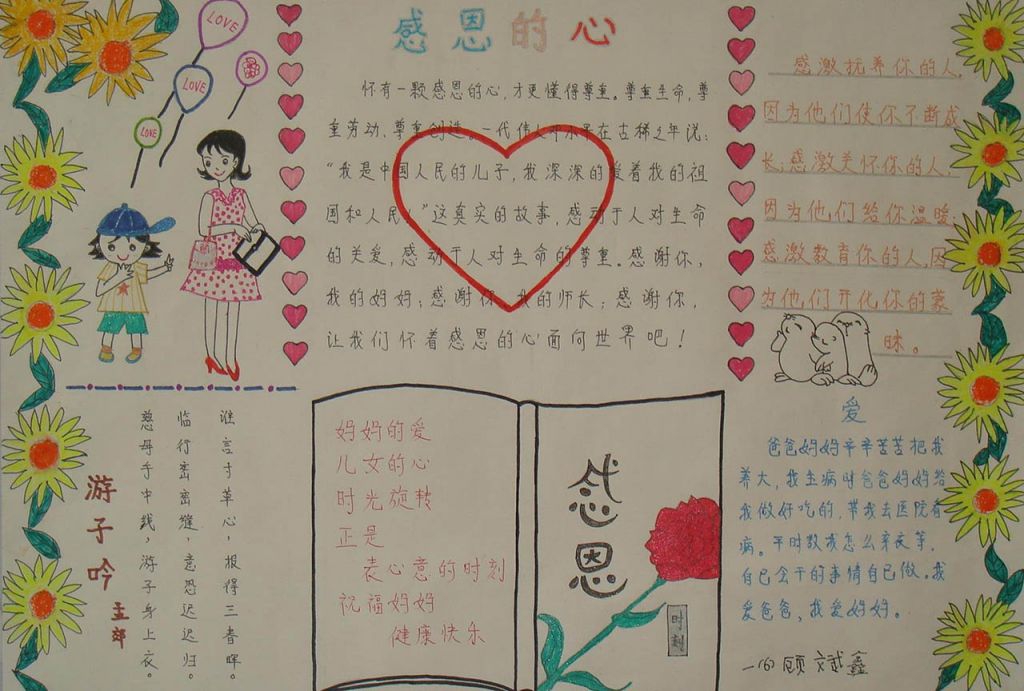 感恩的心
LOVE
LOVE
LOVE
怀有一颗感恩的心,才更懂得尊重。尊重生命,尊
重劳动、尊重创造。一代伟人邓小平在古稀之年说:
"我是中国人民的儿子,我深深的爱着我的祖
国和人民。"这真实的故事,感动于人对生命
的关爱,感动于人对生命的尊重。感谢你,
我的妈妈;感谢你,我的师长;感谢你,
让我们怀着感恩的心面向世界吧!
感激抚养你的人,
因为他们使你不断成
长;感激关怀你的人,
因为他们给你温暖,
感激教育你的人,因
为他们开化你的蒙
昧。
游子吟
慈母手中线,游子身上衣。
临行密密缝,意恐迟迟归。
谁言寸草心,报得三春晖。
妈妈的爱
儿女的心
时光旋转
正是
表心意的时刻
祝福妈妈
健康快乐
感恩
时刻
爱
爸爸妈妈辛辛苦苦把我
养大,我生病时爸爸妈妈给
我做好吃的,带我去医院看
病。平时教我怎么穿衣等,
自己会干的事情自己做。我
爱爸爸,我爱妈妈。
顾斌鑫